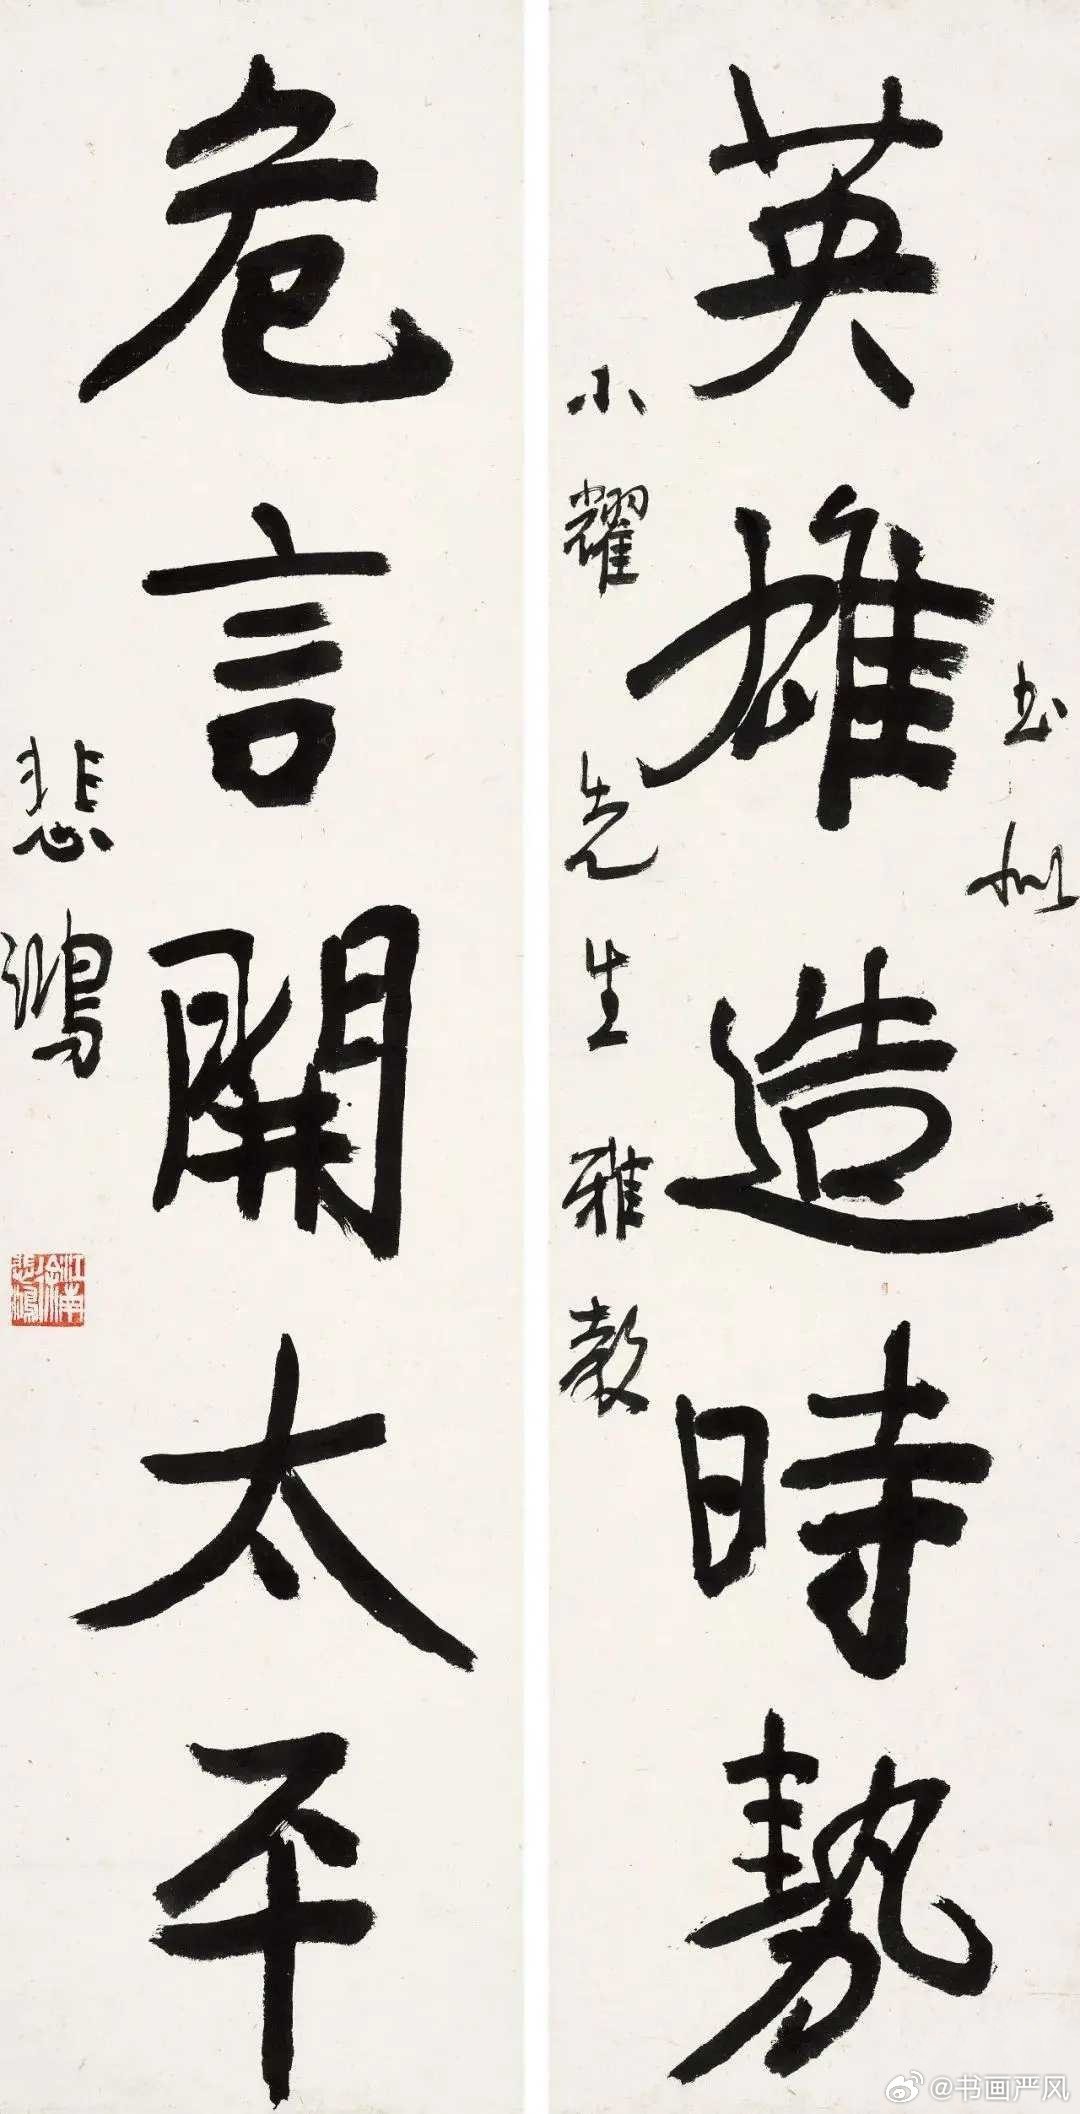 英雄造時勢
書似
小耀先生雅教
危言開太平
悲鴻
江南徐悲鴻
@书画严风